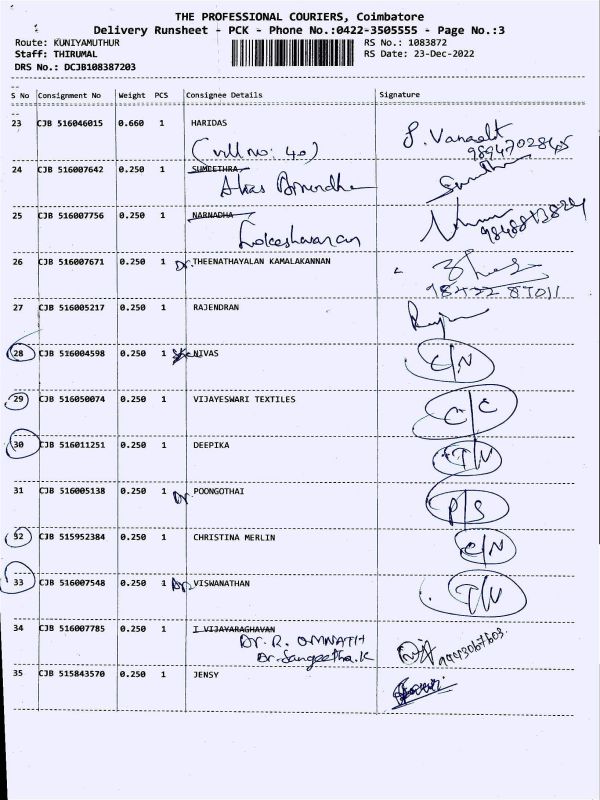 THE PROFESSIONAL COURIERS, Coimbatore
Delivery Runsheet - PCK - Phone No.:0422-3505555 - Page No.:3
Route: KUNIYAMUTHUR RS No.: 1083872
Staff: THIRUMAL RS Date: 23-Dec-2022
DRS No.: DCJB108387203
S No Consignment No Weight PCS Consignee Details Signature
23 CJB 516046015 0.660 1 HARIDAS
24 CJB 516007642 0.250 1 SUMEETHRA
25 CJB 516007756 0.250 1 NARNADHA
Lokeshwaran
26 CJB 516007671 0.250 1 Dr. THEENATHAYALAN KAMALAKANNAN
27 CJB 516005217 0.250 1 RAJENDRAN
28 CJB 516004598 0.250 1 NIVAS C/N
29 CJB 516050074 0.250 1 VIJAYESWARI TEXTILES C/C
30 CJB 516011251 0.250 1 DEEPIKA
31 CJB 516005138 0.250 1 Dr. POONGOTHAI P/S
32 CJB 515952384 0.250 1 CHRISTINA MERLIN C/N
33 CJB 516007548 0.250 1 Dr. VISWANATHAN
34 CJB 516007785 0.250 1 I VIJAYARAGHAVAN
Dr. R. OMNATH
Dr. Sangeetha.K
35 CJB 515843570 0.250 1 JENSY